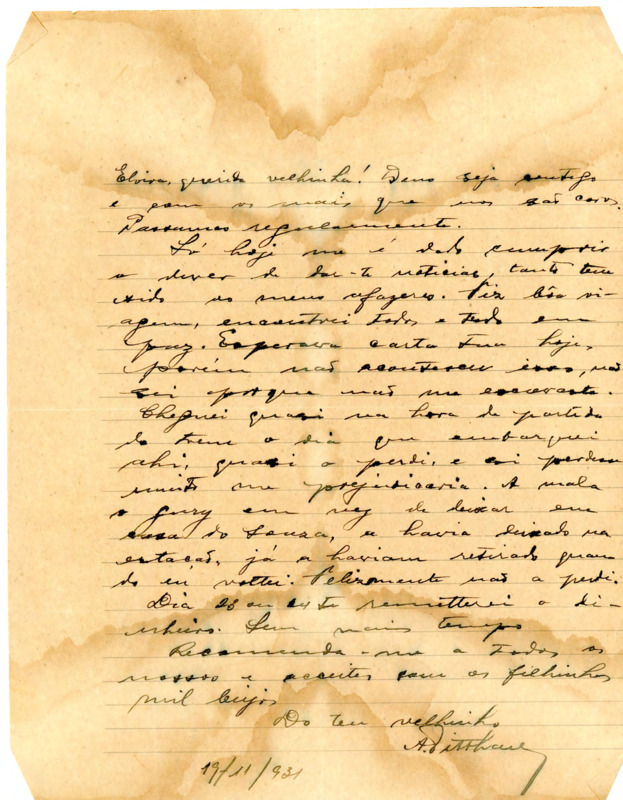 Elvira, querida velhinha! Deus seja comtigo
e com os mais que nos são caros.
Passamos regularmente.
Só hoje me é dado cumprir
o dever de dar-te noticias, tanto tem
sido os meus afazeres. Fiz bôa vi-
agem, encontrei todos e tudo em
paz. Esperava carta tua hoje,
porém não aconteceu isso, não
sei porque não me escreveste.
Cheguei quasi na hora da partida
do trem o dia que embarquei
ahi, quasi o perdi, e si perdesse
muito me prejudicaria. A mala
o gury em vez de deixar em
casa do Souza, a havia deixado na
estacão, já a haviam retirado quan
do eu voltei. Felizmente não a perdi.
Dia ou te remetterei o di-
nheiro. Sem mais tempo
Recomenda-me a todos os
nossos e acceites com os filhinhos
mil beijos
Do teu velhinho
19/11/931